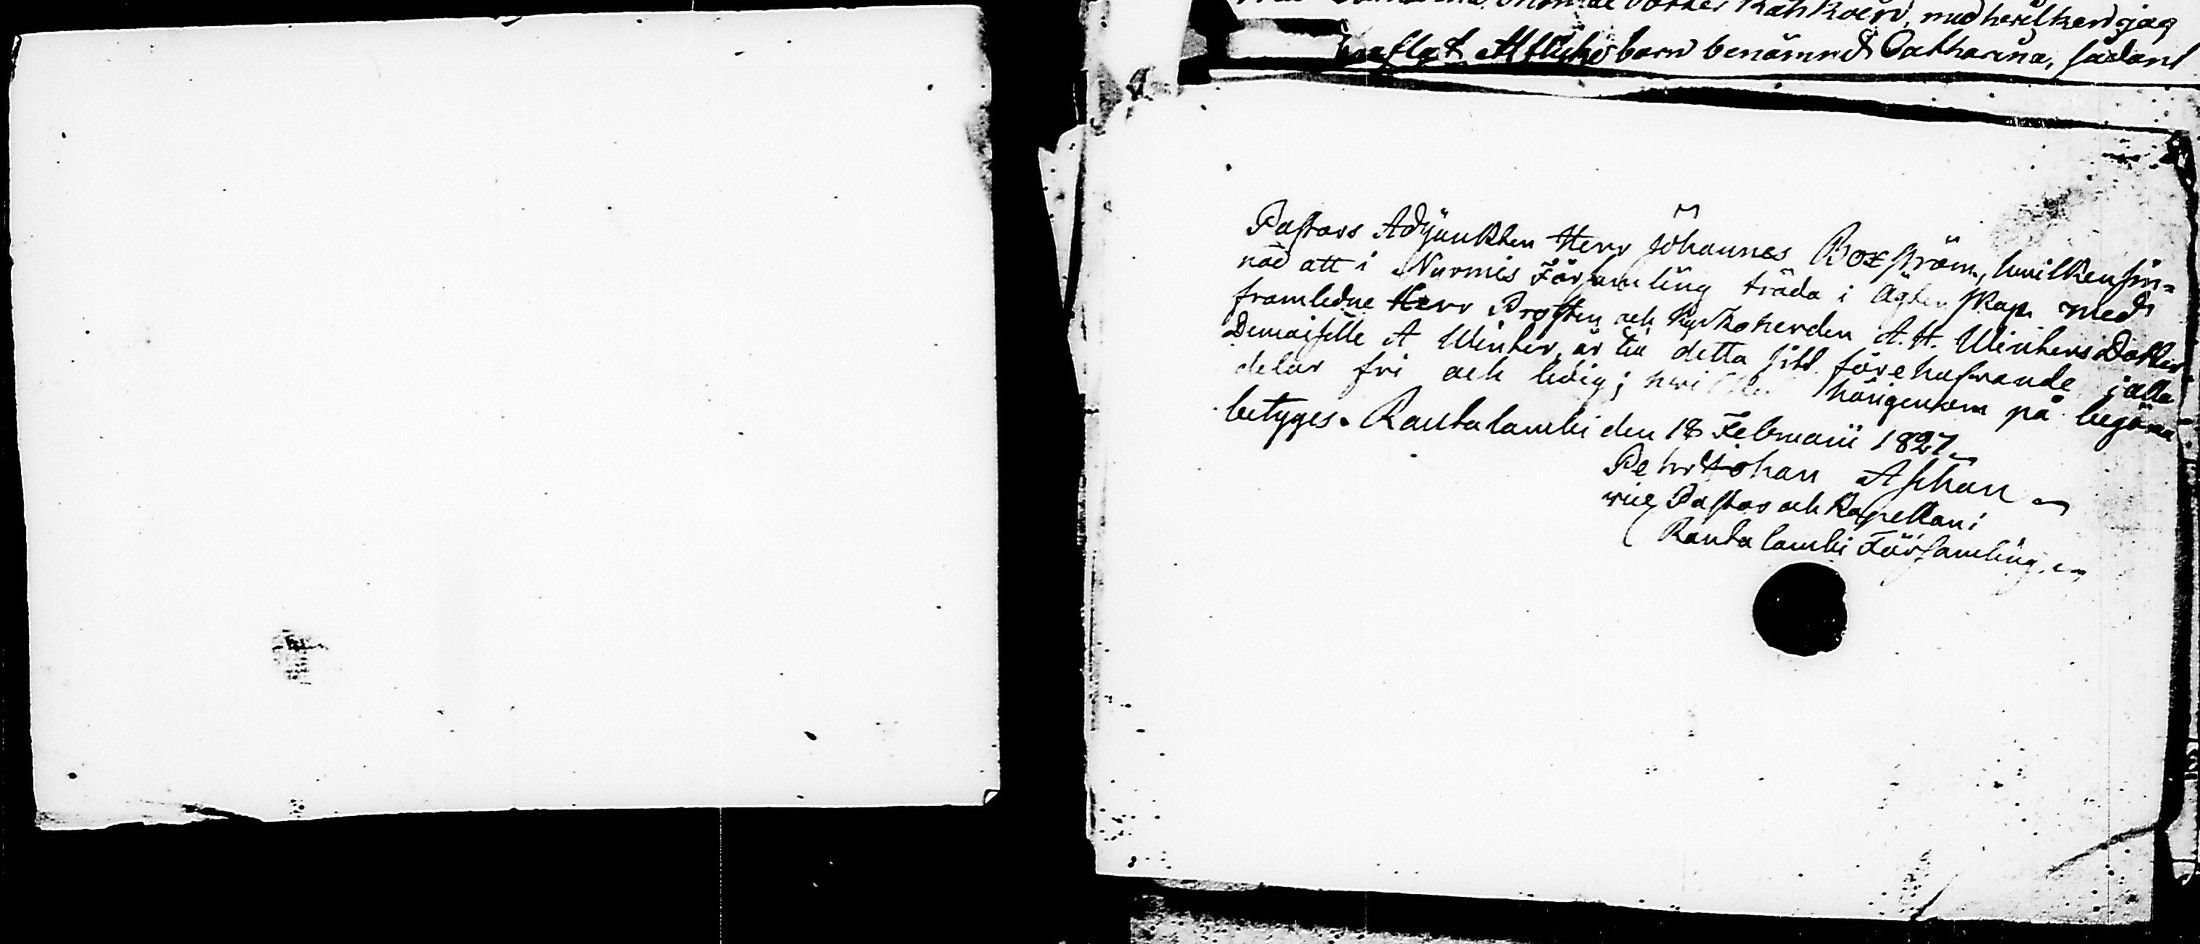 Catharina Thomae dotter Kähkoein, med hvilken jag
aflat barn benämndt Catharina, sådant
Pastors Adjunkten Herr Johannes Boxström, hwilken sin-
nad att i Nurmis Församling träda i Äktenskap med
framledne Herr Prosten och Kyrkoherden A. H. Winters Dotter
Demoiselle A Winter, är till detta sitt förehafwande i alla
delar fri och ledig; hwilket härigenom på begäran
betyges. Rautalambi den 18 Februarii 1827.
Pehr Johan Aschan
vice Pastor och Kapellan i
Rautalambi Församling.